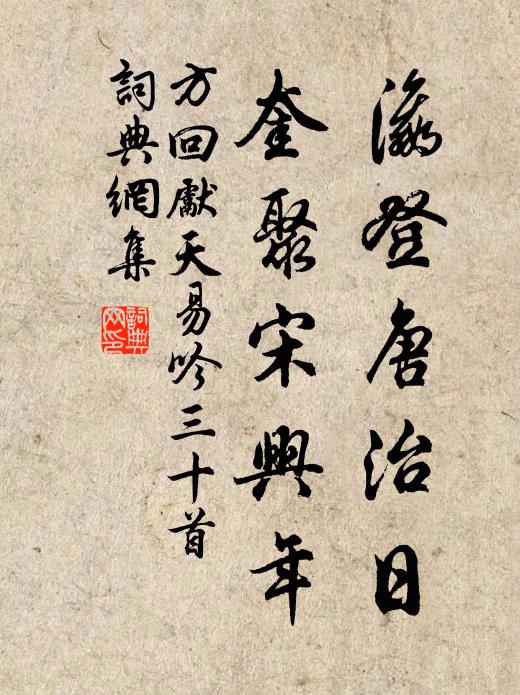 瀛登唐治日
奎聚宋興年
方回獻天易吟三十首
詞典網集
詞典網印